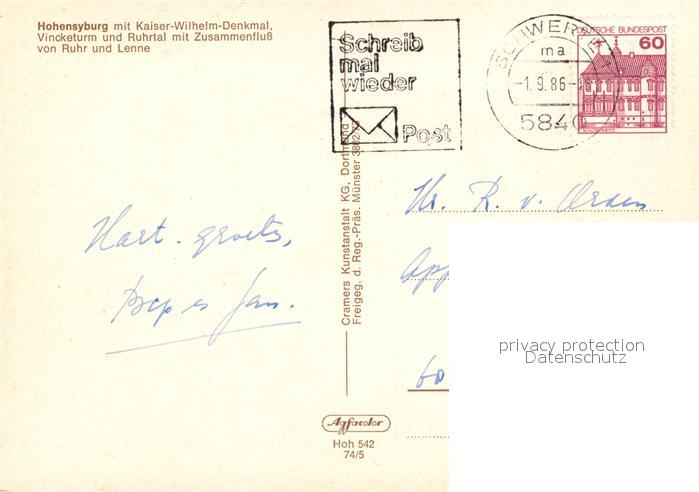 Hohensyburg mit Kaiser-Wilhelm-Denkmal,
Vincketurm und Ruhrtal mit Zusammenfluß
von Ruhr und Lenne
Schreib
mal
wieder
Post
SCHWERTE
ma
-1.9.86-
5840
DEUTSCHE BUNDESPOST
60
Hr. R. v. Orden
App
60
Hart. groets,
Jan.
Cramers Kunstanstalt KG, Dortmund
Freigeg. d. Reg.-Präs. Münster
Agfacolor
Hoh 542
74/5
privacy protection
Datenschutz